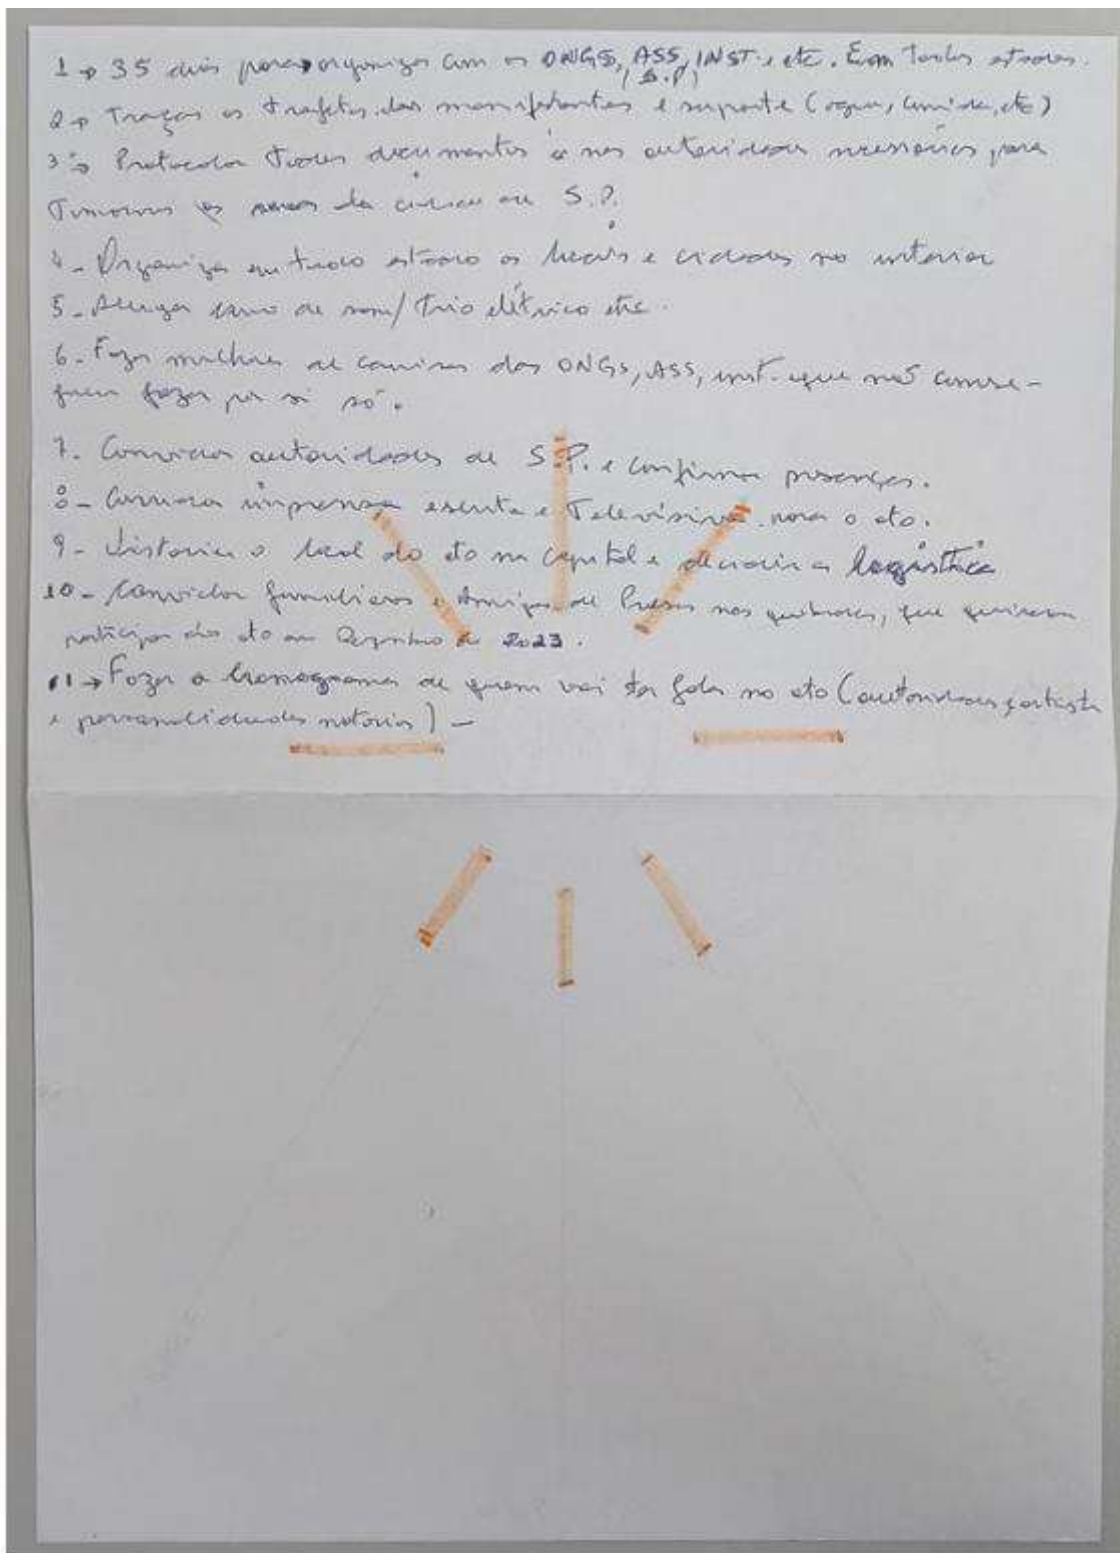 1 → 35 dias para organizar com as ONGS, ASS, INST. etc. Em todos estados.
(S.P)
2 → Traçar os trajetos dos manifestantes e suporte (agua, comida, etc)
3 → Protocolar todos documentos e nas autoridades necessárias para
os da S.P.
4 - Organizar em todo estado os locais e cidades no interior
5 - Alugar carro de som/ Trio elétrico etc.
6 - Fazer milhares de camisas das ONGs, ASS, inst. que não conse-
guem fazer por si só.
7. Convidar autoridades de S.P. e confirmar presenças.
8 - Convidar imprensa escrita e Televisiva para o ato.
9 - Vistoriar o local do ato na capital e decidir a logística
10 - Convidar familiares e Amigos de Presos nas quebradas, que queiram
participar do ato em Dezembro de 2023.
11 → Fazer o cronograma de quem vai ter fala no ato (autoridades, artista
e personalidades notorias) -